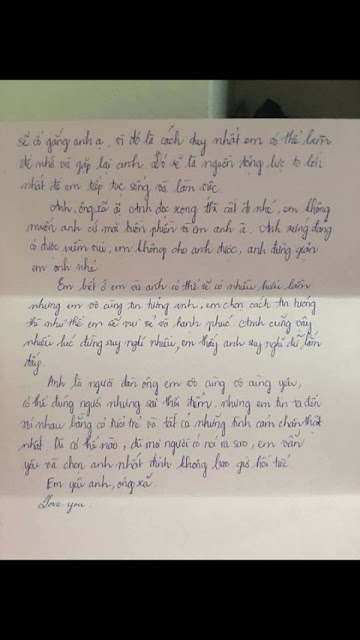 sẽ cố gắng anh ạ, vì đó là cách duy nhất em có thể làm
để nhớ và gặp lại anh. Đó sẽ là nguồn động lực to lớn
nhất để em tiếp tục sống và làm việc.
Anh, ông xã ơi anh đọc xong thì cất đi nhé, em không
muốn anh cứ mãi buồn phiền vì em anh à. Anh xứng đáng
có được niềm vui, em không cho anh được, anh đừng giận
em anh nhé
Em biết ở em và anh có thể sẽ có nhiều hiểu lầm
nhưng em vô cùng tin tưởng anh, em chọn cách tin tưởng
thì như thế em sẽ vui vẻ và hạnh phúc. Anh cũng vậy
nhiều lúc đừng suy nghĩ nhiều, em thấy anh suy nghĩ dữ lắm
đấy.
Anh là người đàn ông em vô cùng vô cùng yêu,
có thể đúng người nhưng sai thời điểm, nhưng em tin ta đến
với nhau bằng cả tuổi trẻ và tất cả những tình cảm chân thật
nhất. Dù có thế nào, dù mọi người có nói ra sao, em vẫn
yêu và chọn anh nhất định không bao giờ hối tiếc
Em yêu anh, ông xã.
Love you.